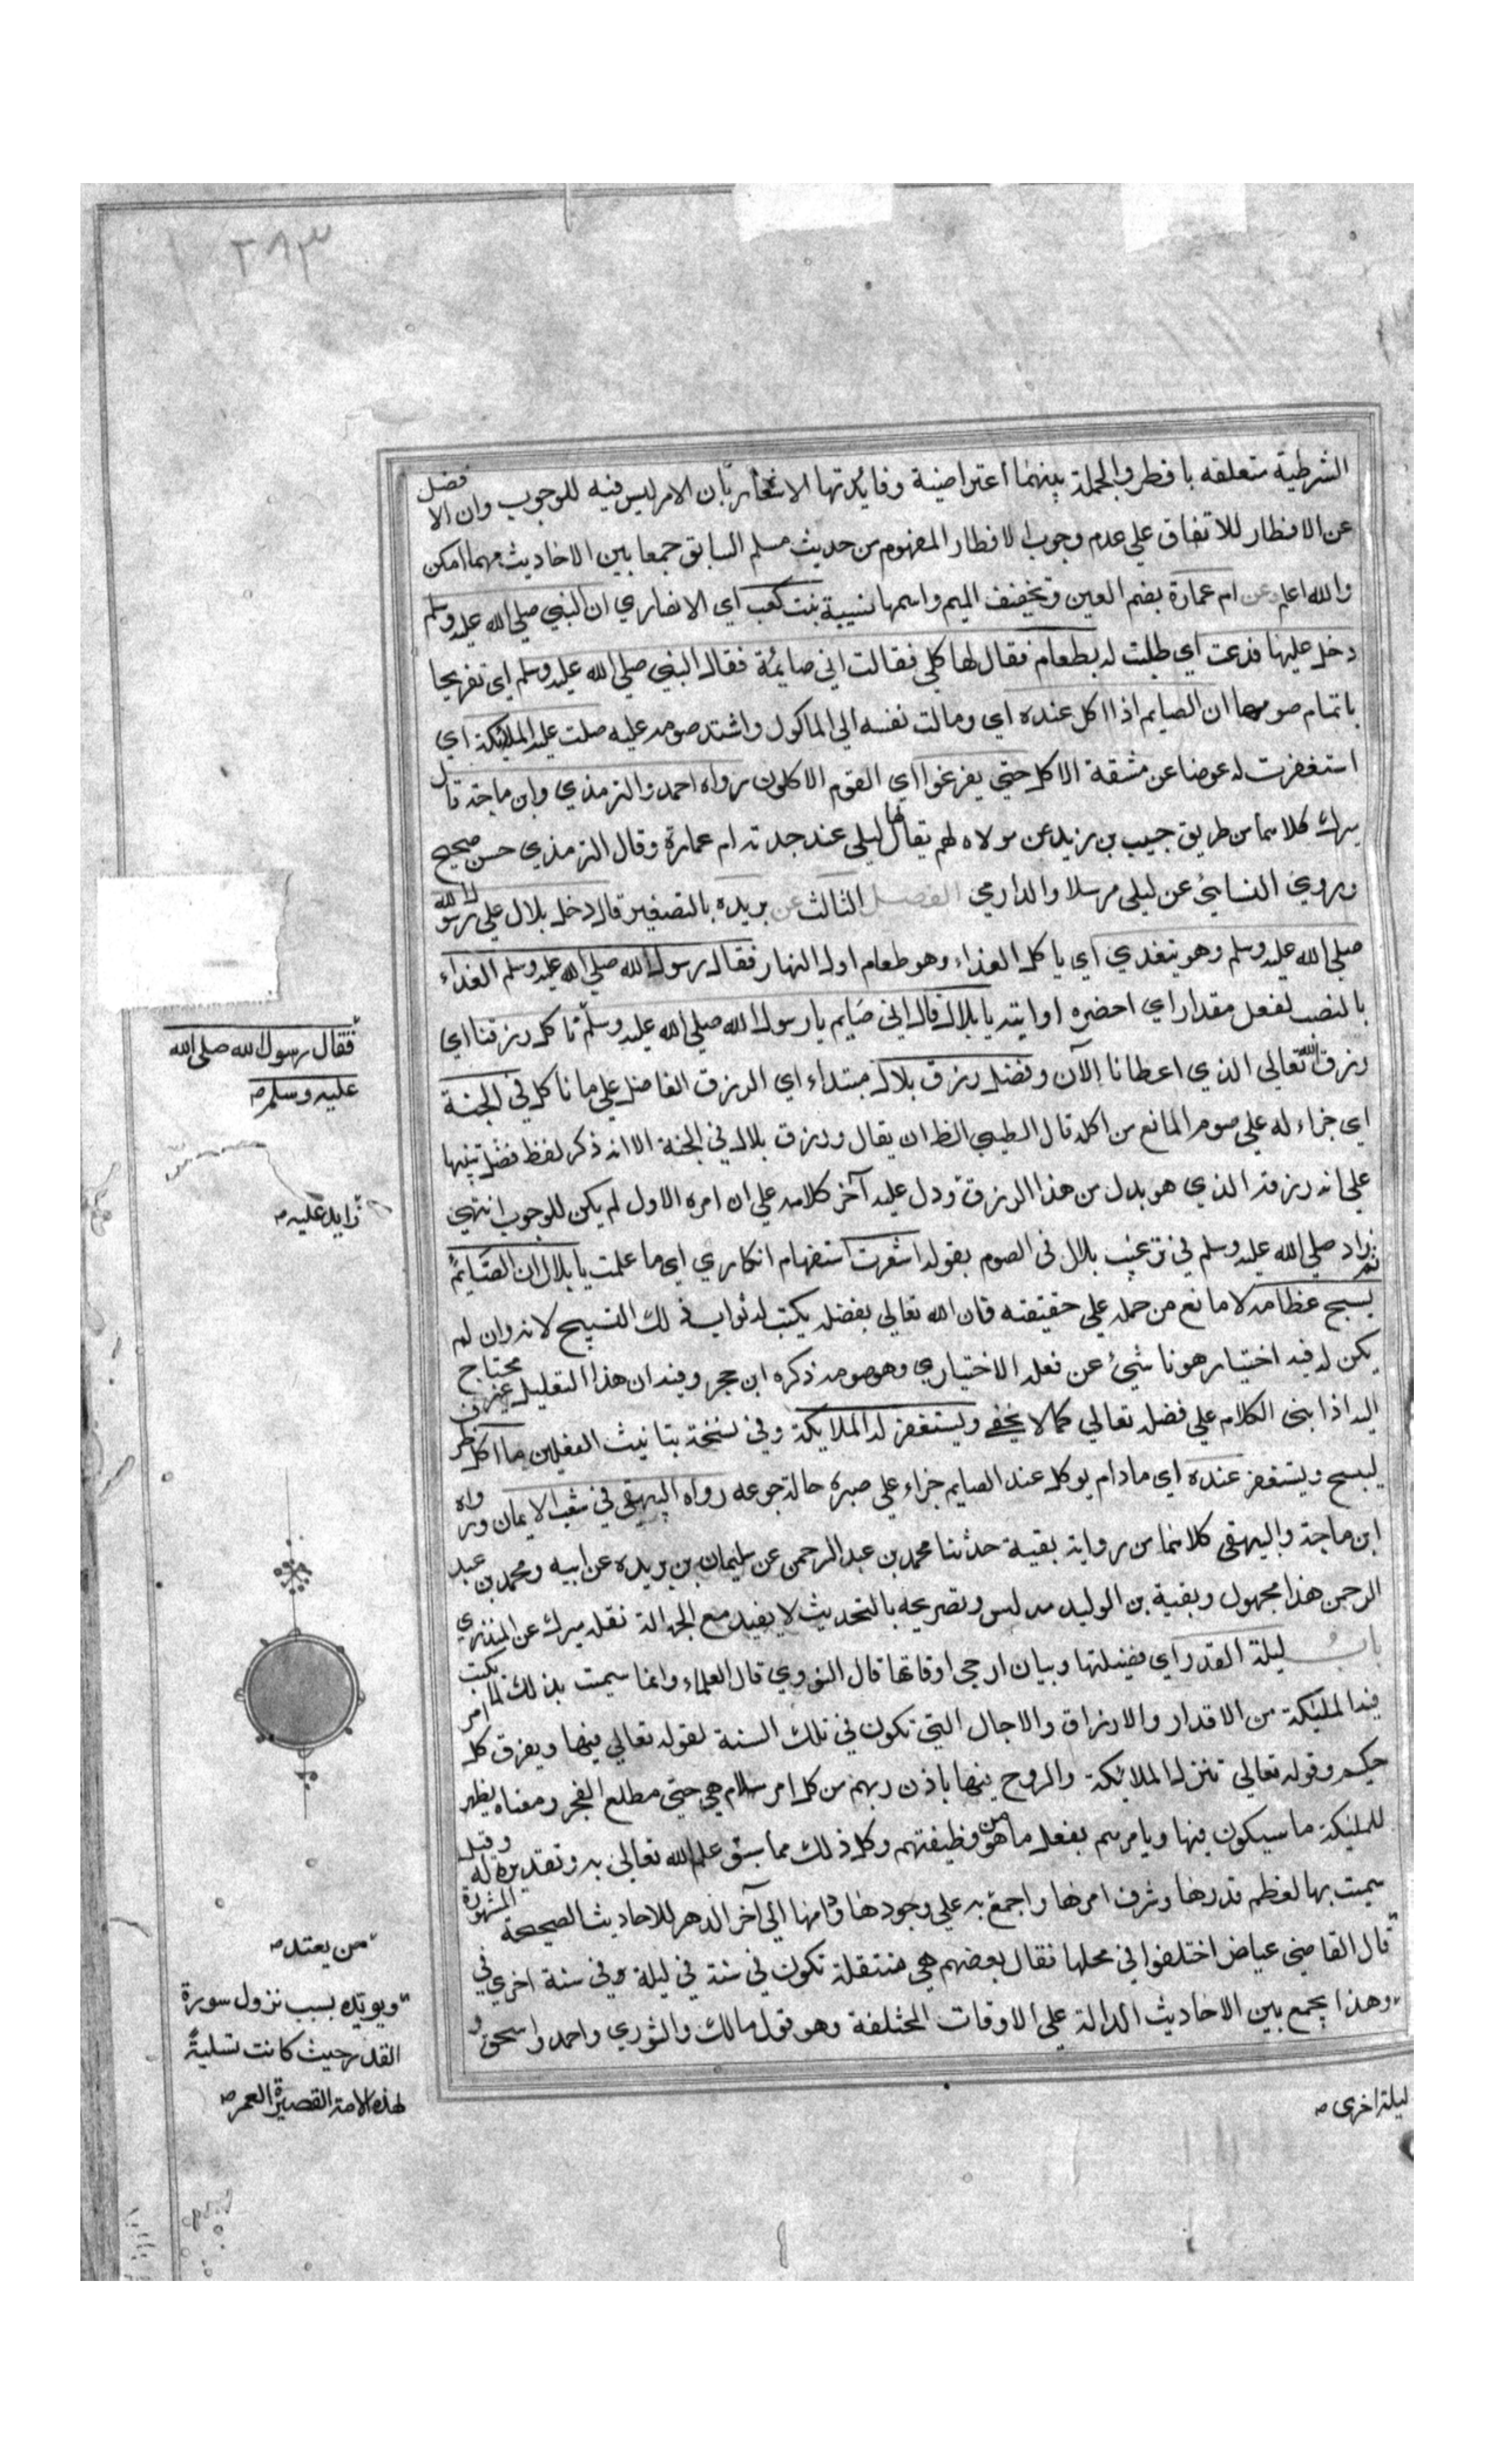 ٢٨٣
الشرطية متعلقه بافطر والجملة بينهما اعتراضية وفايدتها الاشعار بان الامر ليس فيه للوجوب وان الافضل
عن الافطار للاتفاق علي عدم وجوب الافطار المفهوم من حديث مسلم السابق جمعا بين الاحاديث مهما امكن
والله اعلم وعن ام عمارة بضم العين وتخفيف الميم واسمها نسيبة بنت كعب اي الانصاري ان النبي صلي الله عليه وسلم
دخل عليها فدعت اي طلبت له بطعام فقال لها كلي فقالت اني صايمة فقال النبي صلي الله عليه وسلم اي تفريحا
باتمام صومها ان الصايم اذا اكل عنده اي ومالت نفسه الي الماكول واشتد صومه عليه صلت عليه الملايكة اي
استغفرت له عوضا عن مشقة الاكل حتي يفرغوا اي القوم الاكلون رواه احمد والترمذي وابن ماجة قال
ميرك كلاهما من طريق حبيب بن زيد عن مولاه لهم يقال لها ليلي عند جدته ام عمارة وقال الترمذي حسن صحيح
وروي النسايئ عن ليلي مرسلا والدارمي الفصل الثالث عن بريده بالتصغير قال دخل بلال علي رسول الله
صلي الله عليه وسلم وهو يتغدي اي ياكل الغذاء وهو طعام اول النهار فقال رسول الله صلي الله عليه وسلم الغداء
بالنصب لفعل مقدار اي احضره او ايته يا بلال قال اني صايم يا رسول الله صلي الله عليه وسلم ناكل رزقنا اي
رزق الله تعالي الذي اعطانا الآن وفضل رزق بلال مبتداء اي الرزق الفاضل علي ما ناكل في الجنة
اي جزاء له علي صومه المانع من اكله قال الطيبي الظ ان يقال ورزق بلال في الجنة الا انه ذكر لفظ فضل تنبيها
علي انه رزقه الذي هو بدل من هذا الرزق ودل عليه آخر كلامه علي ان امره الاول لم يكن للوجوب انتهي
ثم زاد صلي الله عليه وسلم في ترغيب بلال في الصوم بقوله اشعرت استفهام انكاري اي ما علمت يا بلال ان الصايم
يسبح عظامه لا مانع من حمله علي حقيقته فان الله تعالي بفضله يكتب له ثواب ذلك التسبيح لانه وان لم
يكن له فيه اختيار هو ناشيئ عن فعله الاختياري وهو صومه ذكره ابن حجر وفيه ان هذا التعليل غير محتاج
اليه اذا بني الكلام علي فضله تعالي كما لا يخفي ويستغفر له الملايكة وفي نسخة بتانيث الفعلين ما اكل ظرف
ليسبح ويستغفر عنده اي مادام يوكل عند الصايم جزاء علي صبره حالة جوعه رواه البيهقي في شعب الايمان ورواه
ابن ماجة والبيهقي كلاهما من رواية بقية حدثنا محمد بن عبد الرحمن عن سليمان بن بريده عن ابيه ومحمد بن عبد
الرحمن هذا مجهول وبقية بن الوليد مدلس وتصريحه بالتحديث لا يفيد مع الجهالة نقله ميرك عن المنذري
باب ليلة القدر اي فضيلتها وبيان ارجي اوقاتها قال النووي قال العلماء وانما سميت بذلك لما يكتب
فيه الملئكة من الاقدار والارزاق والاجال التي تكون في تلك السنة لقوله تعالي فيها ويفرق كل امر
حكيم وقوله تعالي تنزل الملائكة والروح فيها باذن ربهم من كل امر سلام هي حتي مطلع الفجر ومعناه يظهر
للملئكة ما سيكون فيها ويامرهم بفعل ما هو من وظيفتهم وكل ذلك مما سبق علم الله تعالي به وتقديره له وقيل
سميت بها لعظم قدرها وشرف امرها واجمع به علي وجودها ودامها الي آخر الدهر للاحاديث الصحيحة المشهورة
قال القاضي عياض اختلفوا في محلها فقال بعضهم هي منتقلة تكون في سنة في ليلة وفي سنة اخري في
وهذا يجمع بين الاحاديث الدالة علي الاوقات المختلفة وهو قول مالك والثوري واحمد واسحق و
فقال رسول الله صلي الله
عليه وسلم
زايد عليه
من يعتد
ويويده بسبب نزول سورة
القدر حيث كانت تسلية
لهذه الامة القصيرة العمر
ليلة اخري